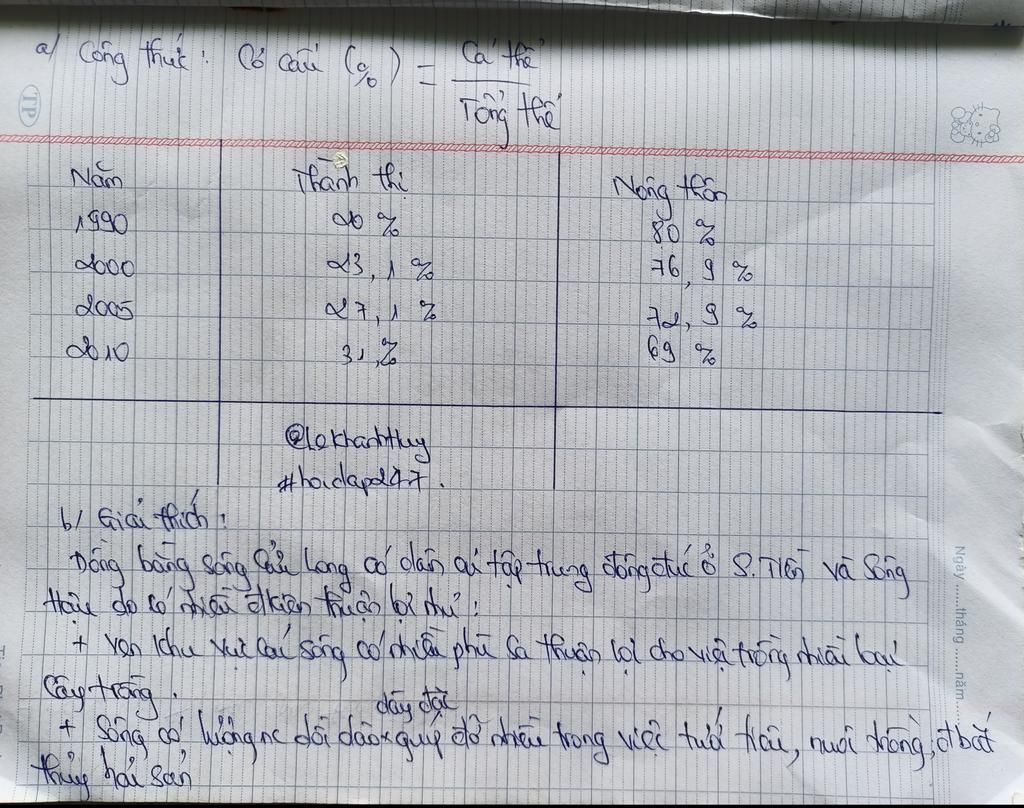 a/ Công thức: Cơ cấu (%) = Cá thể
Tổng thể
TP
Năm Thành thị Nông thôn
1990 20 % 80 %
2000 23,1 % 76,9 %
2005 27,1 % 72,9 %
2010 31,% 69 %
@lekhanhthuy
#hoidap247.
b/ Giải thích:
Đồng bằng sông Cửu Long có dân cư tập trung đông đúc ở S.Tiền và Sông
Hậu do có nhiều đkiện thuận lợi như:
+ Ven khu vực các sông có nhiều phù sa thuận lợi cho việc trồng nhiều loại
cây trồng.
dày đặc
+ Sông có lượng nc dồi dào x giúp đỡ nhiều trong việc tưới tiêu, nuôi trồng, đ bắt
thủy hải sản
Ngày ......tháng .....năm